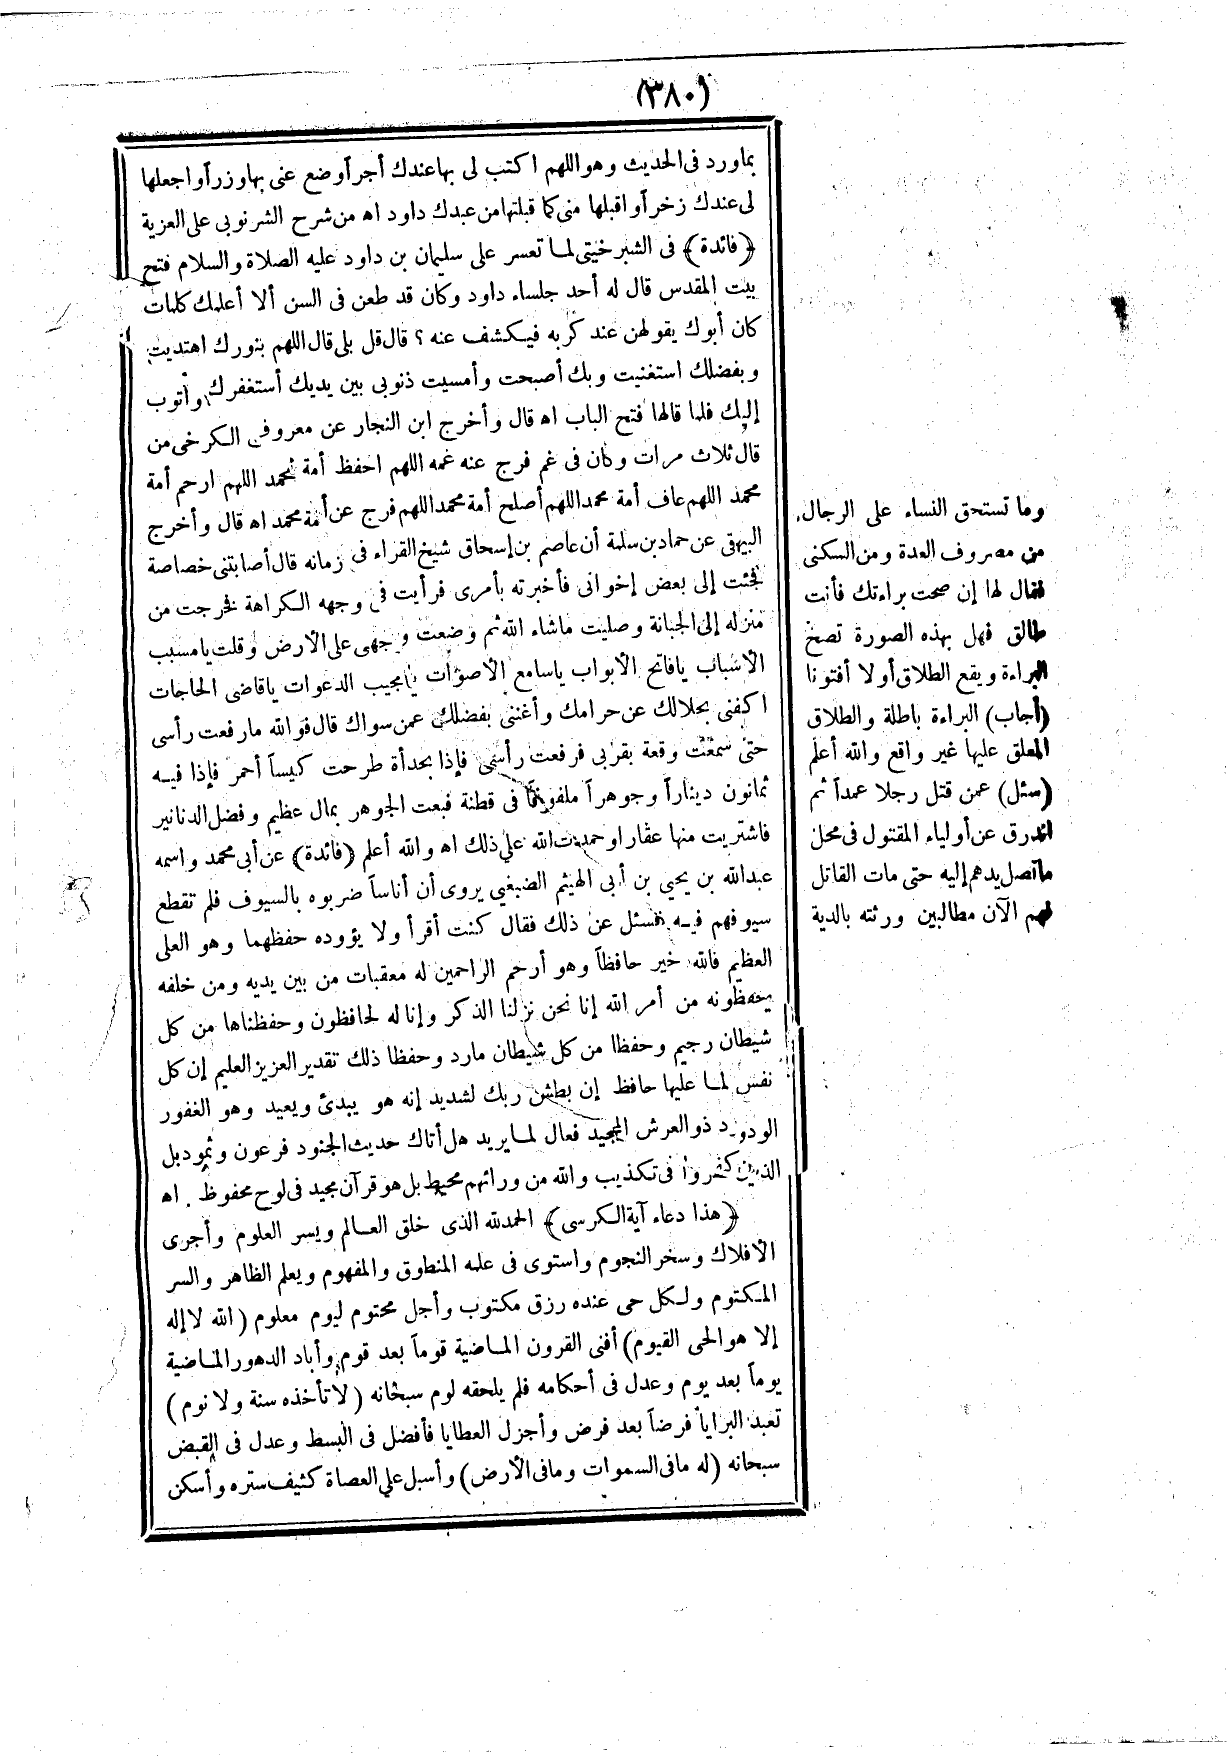 (٣٨٠)
بماورد فى الحديث وهو اللهم اكتب لى بها عندك أجراً وضع عنى بها وزراً واجعلها
لى عندك زخراً واقبلها منى كما قبلتها من عبدك داود اه من شرح الشرنوبى على العزية
﴿فائدة﴾ فى الشبرخيتى لما تعسر على سليمان بن داود عليه الصلاة والسلام فتح
بيت المقدس قال له أحد جلساء داود وكان قد طعن فى السن ألا أعلمك كلمات
كان أبوك يقولهن عند كربه فيكشف عنه ؟ قال قل بلى قال اللهم بنورك اهتديت
وبفضلك استغنيت وبك أصبحت وأمسيت ذنوبى بين يديك أستغفرك وأتوب
إليك فلما قالها فتح الباب اه قال وأخرج ابن النجار عن معروف الكرخى من
قال ثلاث مرات وكان فى غم فرج عنه غمه اللهم احفظ أمة محمد اللهم ارحم أمة
محمد اللهم عاف أمة محمد اللهم أصلح أمة محمد اللهم فرج عن أمة محمد اه قال وأخرج
البيهقى عن حماد بن سلمة أن عاصم بن إسحاق شيخ القراء فى زمانه قال أصابتنى خصاصة
فجئت إلى بعض إخوانى فأخبرته بأمرى فرأيت فى وجهه الكراهة فخرجت من
منزله إلى الجبانة وصليت ماشاء الله ثم وضعت وجهى على الأرض وقلت يامسبب
الأسباب يافاتح الأبواب ياسامع الأصوات يامجيب الدعوات ياقاضى الحاجات
اكفنى بحلالك عن حرامك وأغننى بفضلك عمن سواك قال فوالله مارفعت رأسى
حتى سمعت وقعة بقربى فرفعت رأسى فإذا بحدأة طرحت كيساً أحمر فإذا فيه
ثمانون ديناراً وجوهراً ملفوفاً فى قطنة فبعت الجوهر بمال عظيم وفضل الدنانير
فاشتريت منها عقارا وحمدت الله على ذلك اه والله أعلم ﴿فائدة﴾ عن أبى محمد واسمه
عبدالله بن يحيى بن أبى الهيثم الضبغى يروى أن أناساً ضربوه بالسيوف فلم تقطع
سيوفهم فيه فسئل عن ذلك فقال كنت أقرأ ولا يؤوده حفظهما وهو العلى
العظيم فالله خير حافظاً وهو أرحم الراحمين له معقبات من بين يديه ومن خلفه
يحفظونه من أمر الله إنا نحن نزلنا الذكر وإنا له لحافظون وحفظناها من كل
شيطان رجيم وحفظا من كل شيطان مارد وحفظا ذلك تقدير العزيز العليم إن كل
نفس لما عليها حافظ إن بطش ربك لشديد إنه هو يبدئ ويعيد وهو الغفور
الودود ذو العرش المجيد فعال لما يريد هل أتاك حديث الجنود فرعون وثمود بل
الذين كفروا فى تكذيب والله من ورائهم محيط بل هو قرآن مجيد فى لوح محفوظ . اه
﴿هذا دعاء آية الكرسى﴾ الحمدلله الذى خلق العالم ويسر العلوم وأجرى
الأفلاك وسخر النجوم واستوى فى علمه المنطوق والمفهوم ويعلم الظاهر والسر
المكتوم ولكل حى عنده رزق مكتوب وأجل محتوم ليوم معلوم (الله لا إله
إلا هو الحى القيوم) أفنى القرون الماضية قوماً بعد قوم وأباد الدهور الماضية
يوماً بعد يوم وعدل فى أحكامه فلم يلحقه لوم سبحانه (لا تأخذه سنة ولا نوم)
تعبد البرايا فرضاً بعد فرض وأجزل العطايا فأفضل فى البسط وعدل فى القبض
سبحانه (له مافى السموات ومافى الأرض) وأسبل على العصاة كثيف ستره وأسكن
وما تستحق النساء على الرجال
من مصروف العدة ومن السكنى
فقال لها إن صحت براءتك فأنت
طالق فهل بهذه الصورة تصح
البراءة ويقع الطلاق أولا أفتونا
(أجاب) البراءة باطلة والطلاق
المعلق عليها غير واقع والله أعلم
(سئل) عمن قتل رجلا عمداً ثم
اندرق عن أولياء المقتول فى محل
ماتصل يدهم إليه حتى مات القاتل
فهم الآن مطالبين ورثته بالدية